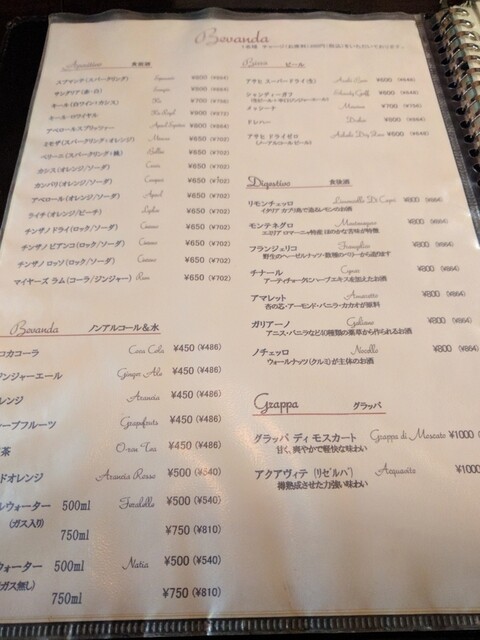 Bevanda
Aperitivo 食前酒
スプマンテ(スパークリング) Spumante ¥800 (¥864)
サングリア(赤・白) Sangria ¥800 (¥864)
キール(白ワイン・カシス) Kir ¥700 (¥756)
キール・ロワイヤル Kir Royal ¥800 (¥864)
アペロールスプリッツァー Aperol Spritzer ¥800 (¥864)
ミモザ(スパークリング・オレンジ) Mimosa ¥650 (¥702)
ベリーニ(スパークリング・桃) Bellini ¥650 (¥702)
カシス(オレンジ/ソーダ) Cassis ¥650 (¥702)
カンパリ(オレンジ/ソーダ) Campari ¥650 (¥702)
アペロール(オレンジ/ソーダ) Aperol ¥650 (¥702)
ライチ(オレンジ/ピーチ) ¥650 (¥702)
チンザノ ドライ(ロック/ソーダ) Cinzano ¥650 (¥702)
チンザノ ビアンコ(ロック/ソーダ) Cinzano ¥650 (¥702)
チンザノ ロッソ(ロック/ソーダ) Cinzano ¥650 (¥702)
マイヤーズ ラム(コーラ/ジンジャー) Rum ¥650 (¥702)
Bevanda ノンアルコール&水
コカコーラ Coca Cola ¥450 (¥486)
ンジャーエール Ginger Ale ¥450 (¥486)
レンジ Arancia ¥450 (¥486)
ープフルーツ Grapefruits ¥450 (¥486)
茶 ¥450 (¥486)
ドオレンジ Arancia Rossa ¥500 (¥540)
ルウォーター 500ml Ferrarelle ¥500 (¥540)
(ガス入り) 750ml ¥750 (¥810)
ウォーター 500ml Natia ¥500 (¥540)
ガス無し) 750ml ¥750 (¥810)
Birra ビール
アサヒ スーパードライ(生) ¥600 (¥648)
シャンディーガフ Shandy Gaff ¥600 (¥648)
(生ビール+辛口ジンジャーエール)
メッシーナ Messina ¥700 (¥756)
ドレハー Dreher ¥600 (¥648)
アサヒ ドライゼロ Asahi Dry Zero ¥500 (¥540)
(ノーアルコールビール)
Digestivo 食後酒
リモンチェッロ Limoncello Di Capri ¥800 (¥864)
イタリア カプリ島で造るレモンのお酒
モンテネグロ Montenegro ¥800 (¥864)
エミリア ロマーニャ特産 ほのかな苦味が特徴
フランジェリコ Frangelico ¥800 (¥864)
野生のヘーゼルナッツ・数種のベリーから造ります
チナール Cynar ¥800 (¥864)
アーティチョークにハーブエキスを加えたお酒
アマレット Amaretto ¥800 (¥864)
杏の芯・アーモンド・バニラ・カカオが原料
ガリアーノ Galliano ¥800 (¥864)
アニス・バニラなど40種類の薬草から作られるお酒
ノチェッロ Nocello ¥800 (¥864)
ウォールナッツ(クルミ)が主体のお酒
Grappa グラッパ
グラッパ ディ モスカート Grappa di Moscato ¥1000
甘く、爽やかで軽快な味わい
アクアヴィテ (リゼルバ) Acquavite ¥1000
樽熟成させた力強い味わい